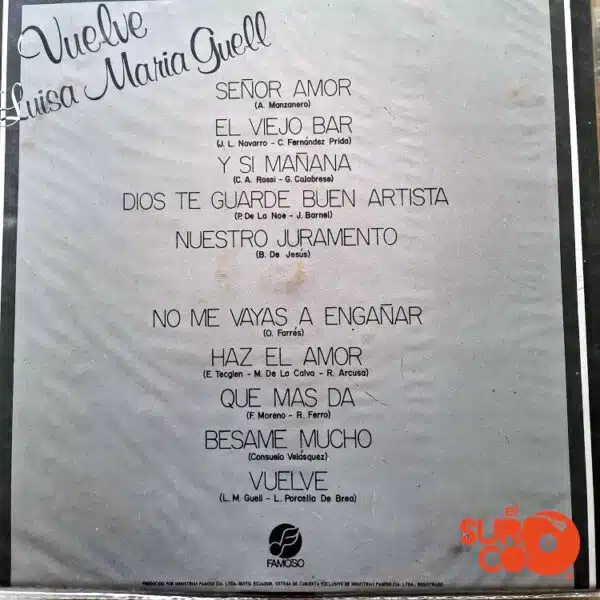 Vuelve
Luisa Maria Guell
SEÑOR AMOR
(A. Manzanero)
EL VIEJO BAR
(J. L. Navarro - C. Fernández Prida)
Y SI MAÑANA
(C. A. Rossi - G. Calabrese)
DIOS TE GUARDE BUEN ARTISTA
(P. De La Noe - J. Barnel)
NUESTRO JURAMENTO
(B. De Jesús)
NO ME VAYAS A ENGAÑAR
(O. Farrés)
HAZ EL AMOR
(E. Tecglen - M. De La Calva - R. Arcusa)
QUE MAS DA
(F. Moreno - R. Ferro)
BESAME MUCHO
(Consuelo Velásquez)
VUELVE
(L. M. Guell - L. Porcella De Brea)
FAMOSO
PRODUCIDO POR INDUSTRIAS FAMOSO CIA. LTDA. QUITO, ECUADOR. SISTEMA DE CUBIERTA EXCLUSIVO DE INDUSTRIAS FAMOSO CIA. LTDA., REGISTRADO
el
SUR
CO